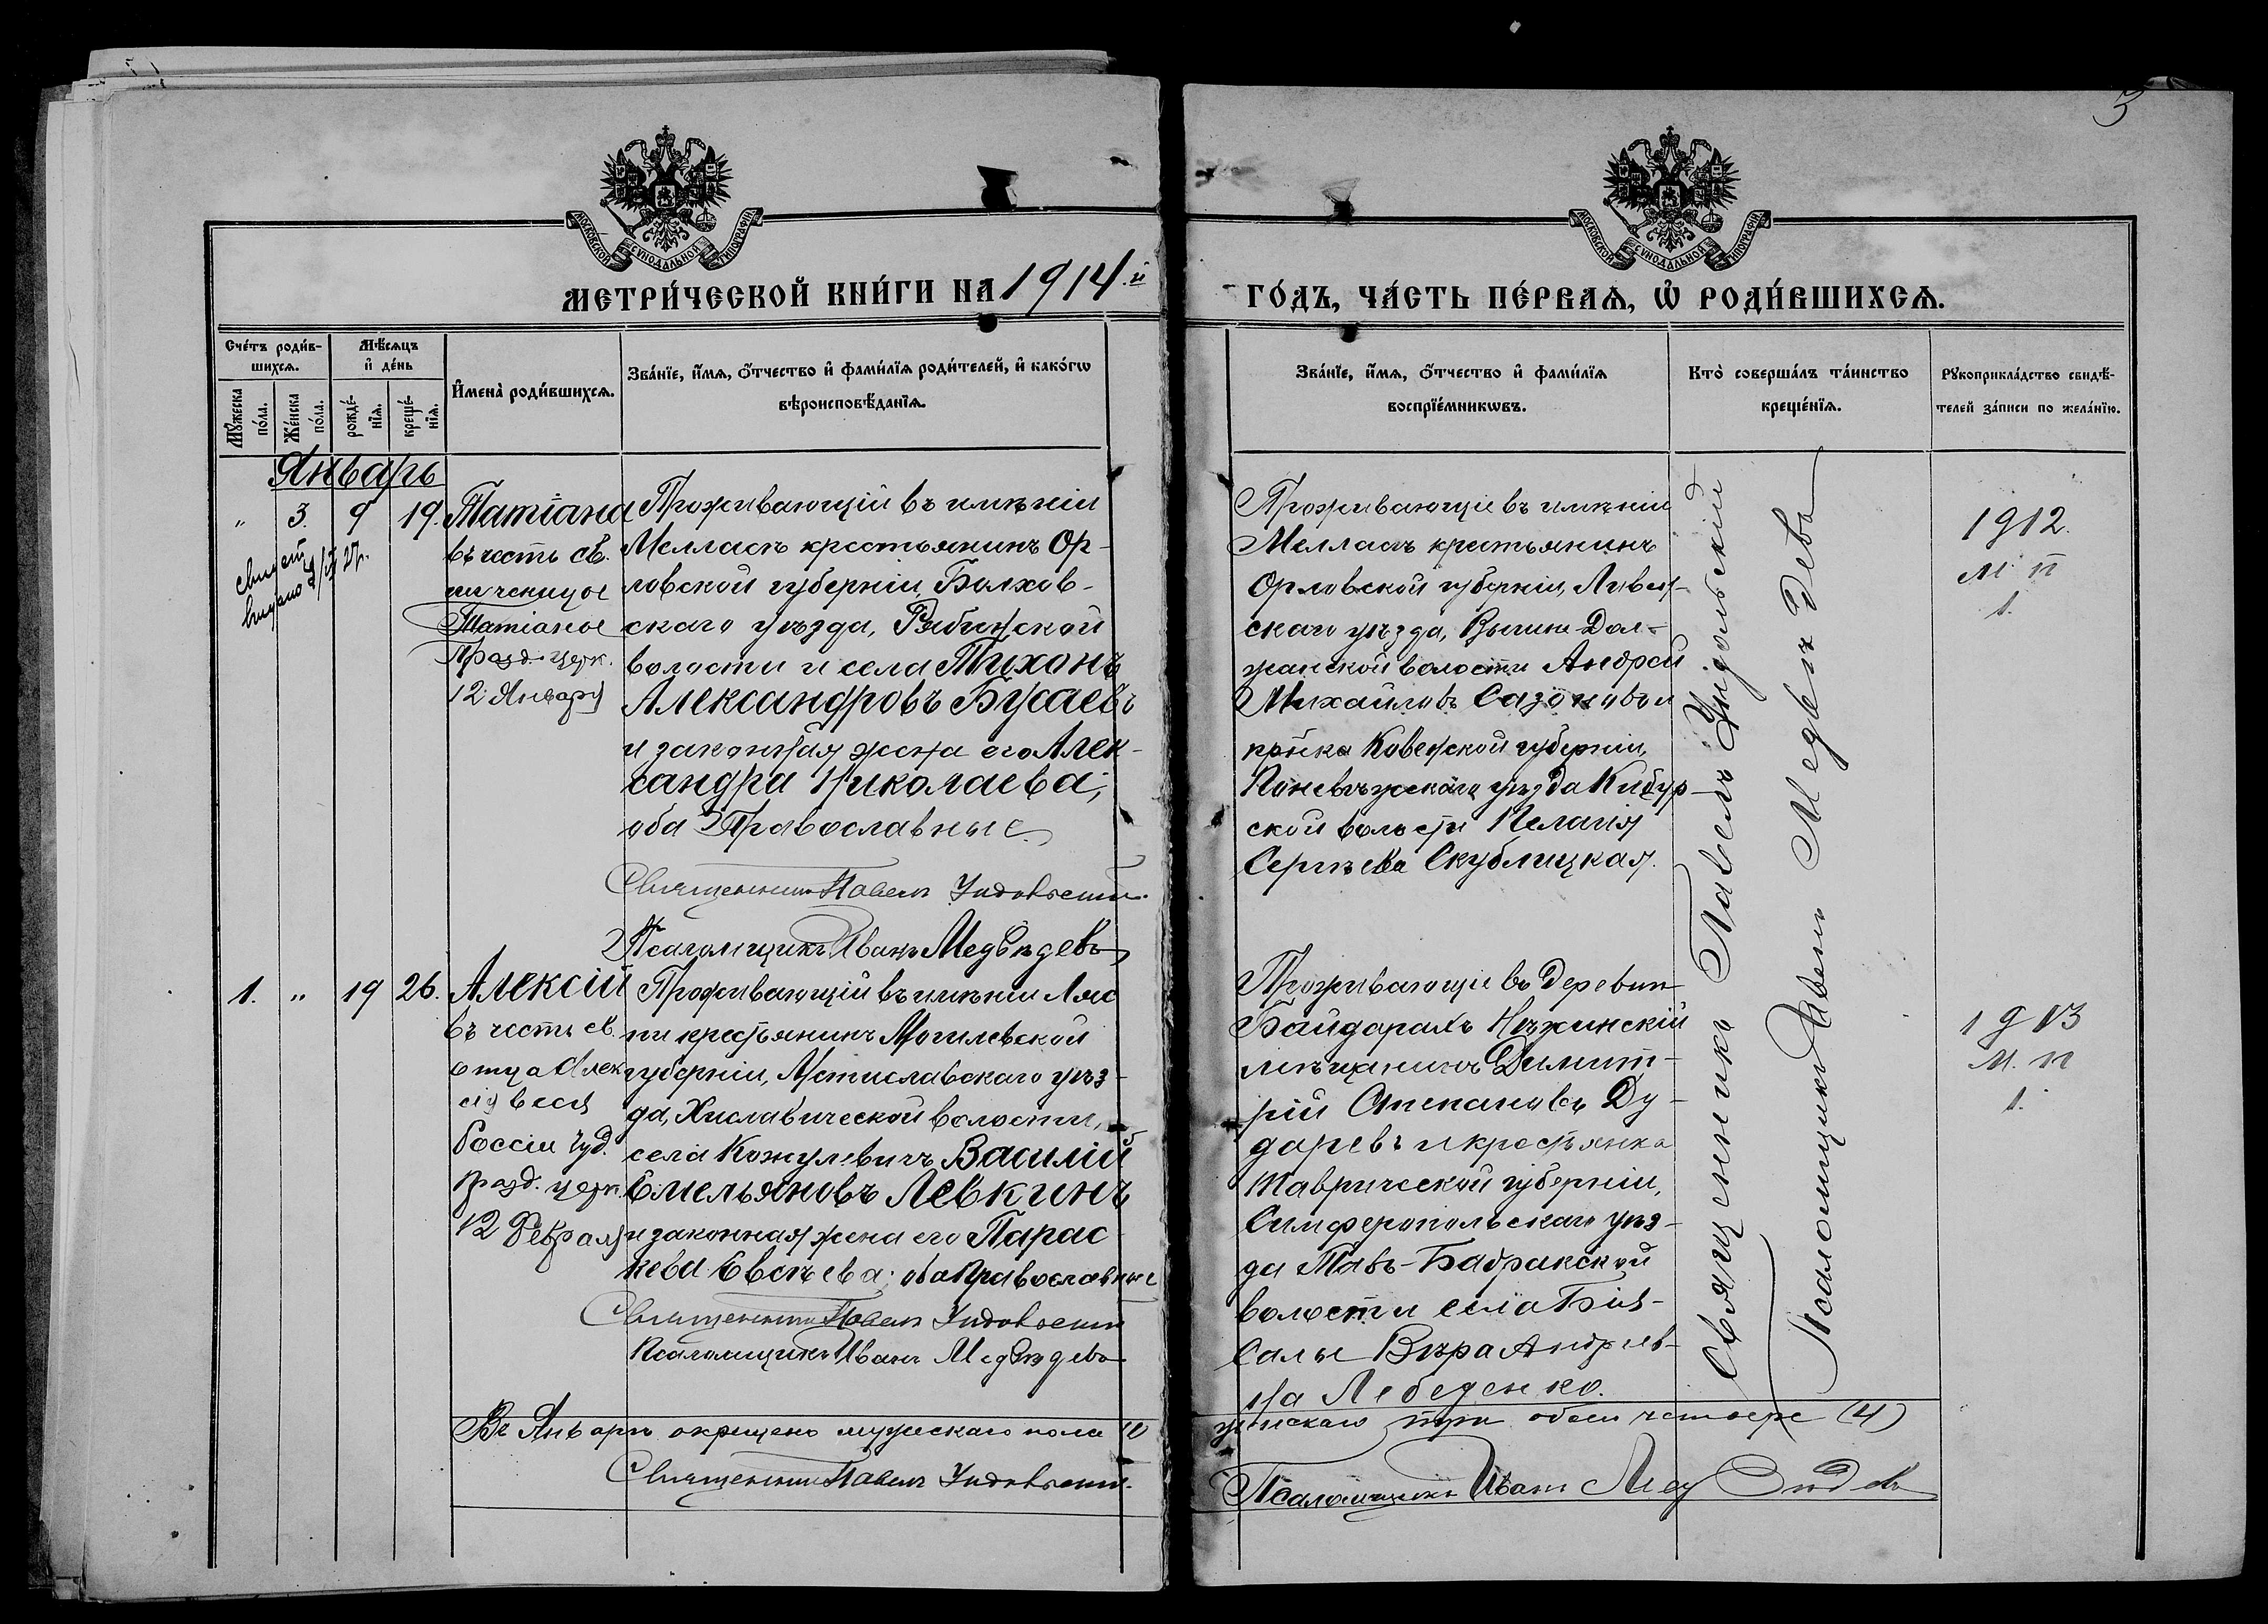 3
МОСКОВСКОЙ СѴНОДАЛЬНОЙ ТИПОГРАФІИ
МОСКОВСКОЙ СѴНОДАЛЬНОЙ ТИПОГРАФІИ
МЕТРИ́ЧЕСКОЙ КНИ́ГИ НА 1914.й
ГО́ДЪ, ЧА́СТЬ ПЕ́РВАѦ, Ѡ҆ РОДИ́ВШИХСѦ.
Сче́тъ роди́в-
шихсѧ.
Мꙋ́жеска
по́ла.
Же́нска
по́ла.
Мѣ́сѧцъ
и҆ де́нь
рожде́-
нїѧ.
креще́-
нїѧ.
И҆мена̀ роди́вшихсѧ.
Зва́нїе, и҆́мѧ, ѻ҆́тчество и҆ фами́лїѧ роди́телей, и҆ како́гѡ
вѣроисповѣ́данїѧ.
Зва́нїе, и҆́мѧ, ѻ҆́тчество и҆ фами́лїѧ
воспрїе́мникѡвъ.
Кто̀ соверша́лъ та́инство
креще́нїѧ.
Рꙋкоприкла́дство свидѣ́-
телей за́писи по жела́нїю.
Январь
" 3. 9 19.
Татіана
въ честь св.
мученицы
Татіаны
празд. церк.
12 Января
Проживающій въ имѣніи
Мелласъ крестьянинъ Ор-
ловской губерніи, Болхов-
скаго уѣзда, Рябинской
волости и села Тихонъ
Александровъ Бусаевъ
и законная жена его Алек-
сандра Николаева;
оба Православные
Священникъ Павелъ Ундольскій
Псаломщикъ Иванъ Медвѣдевъ
Проживающіе въ имѣніи
Мелласъ крестьянинъ
Орловской губерніи, Ливен-
скаго уѣзда, Вышне Дол-
жанской волости Андрей
Михайловъ Сазоновъ и
кр-нка Ковенской губерніи,
Поневѣжскаго уѣзда
ской волости Пелагія
Сергѣева Скублицкая.
1912.
м п
1.
1. " 19 26.
Алексій
въ честь св.
отца Алек
сія всея
Россіи чуд.
празд. церк.
12 Февраля
Проживающій въ имѣніи Лас
пи крестьянинъ Могилевской
губерніи, Мстиславскаго уѣз-
да, Хиславической волости,
села Кожулевичъ Василій
Емельяновъ Левкинъ
и законная жена его Парас
кева Евсѣева; оба Православные
Священникъ Павелъ Ундольскій
Псаломщикъ Иванъ Медвѣдевъ
Проживающіе въ деревни
Байдарахъ Нѣжинскій
мѣщанинъ Димит-
рій Степановъ Ду-
даревъ и крестьянка
Таврической губерніи,
Симферопольскаго уѣз-
да Тавъ-Бадракской
волости села Бія-
Салы Вѣра Андреев-
на Лебеденко.
1913
м. п
1.
Священникъ Павелъ Ундольскій
Псаломщикъ Иванъ Медвѣдевъ
Въ Январѣ окрещено мужескаго пола
женскаго три обоего четверо (4)
Священникъ Павелъ Ундольскій.
Псаломщикъ Иванъ Медвѣдевъ